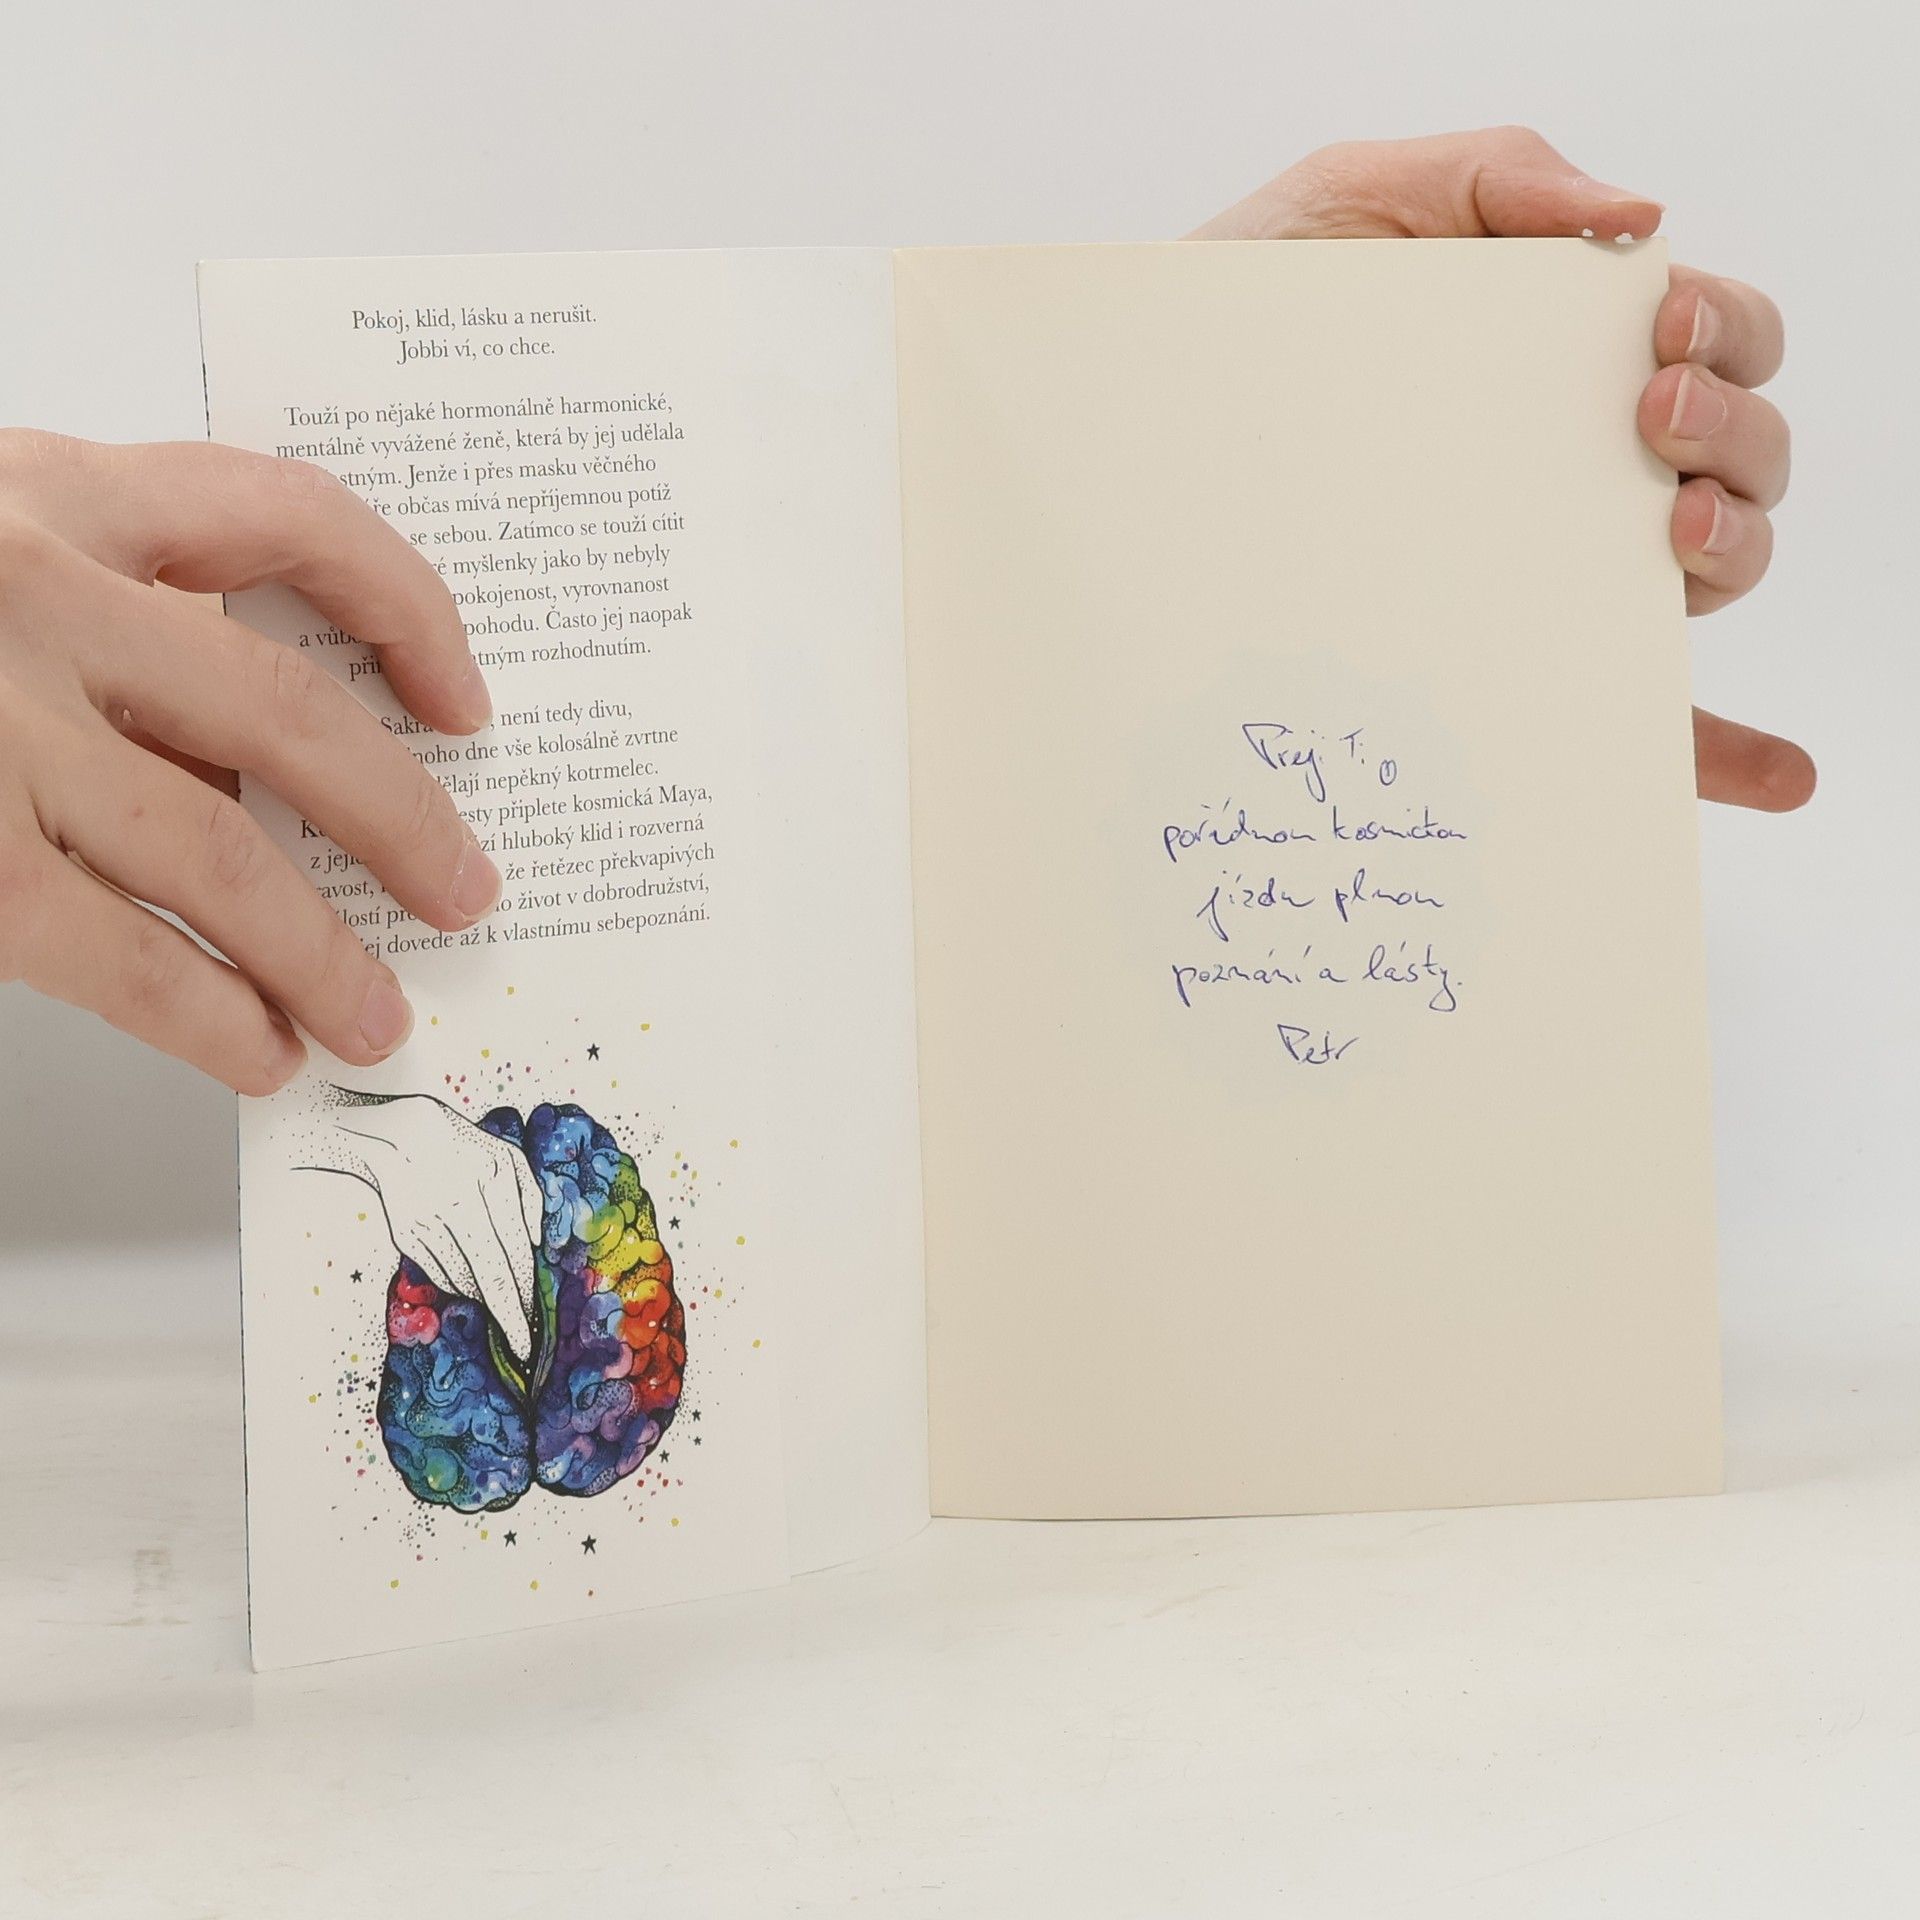 Pokoj, klid, lásku a nerušit.
Jobbi ví, co chce.
Touží po nějaké hormonálně harmonické,
mentálně vyvážené ženě, která by jej udělala
stným. Jenže i přes masku věčného
občas mívá nepříjemnou potíž
se sebou. Zatímco se touží cítit
myšlenky jako by nebyly
pokojenost, vyrovnanost
a pohodu. Často jej naopak
tným rozhodnutím.
není tedy divu,
noho dne vše kolosálně zvrtne
ělají nepěkný kotrmelec.
esty připlete kosmická Maya,
z hluboký klid i rozverná
že řetězec překvapivých
život v dobrodružství,
jej dovede až k vlastnímu sebepoznání.
Přeji Ti
pořádnou kosmickou
jízdu plnou
poznání a lásky.
Petr